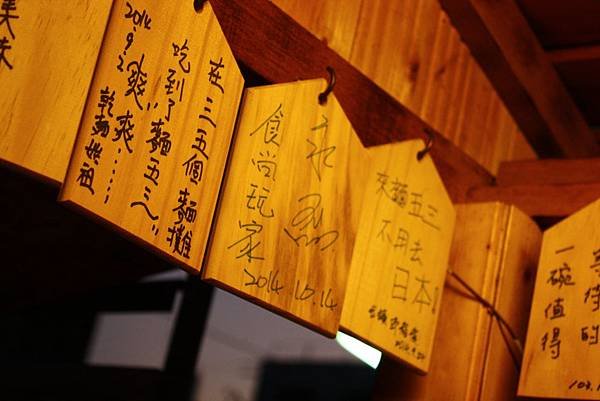 美味
在三五個麵攤
吃到了"麵五三"
2014
9.2
爽爽......
乾麵始祖
永
食尚玩家
2014.10.14
來麵五三
不用去
日本!
等待的
一碗值得